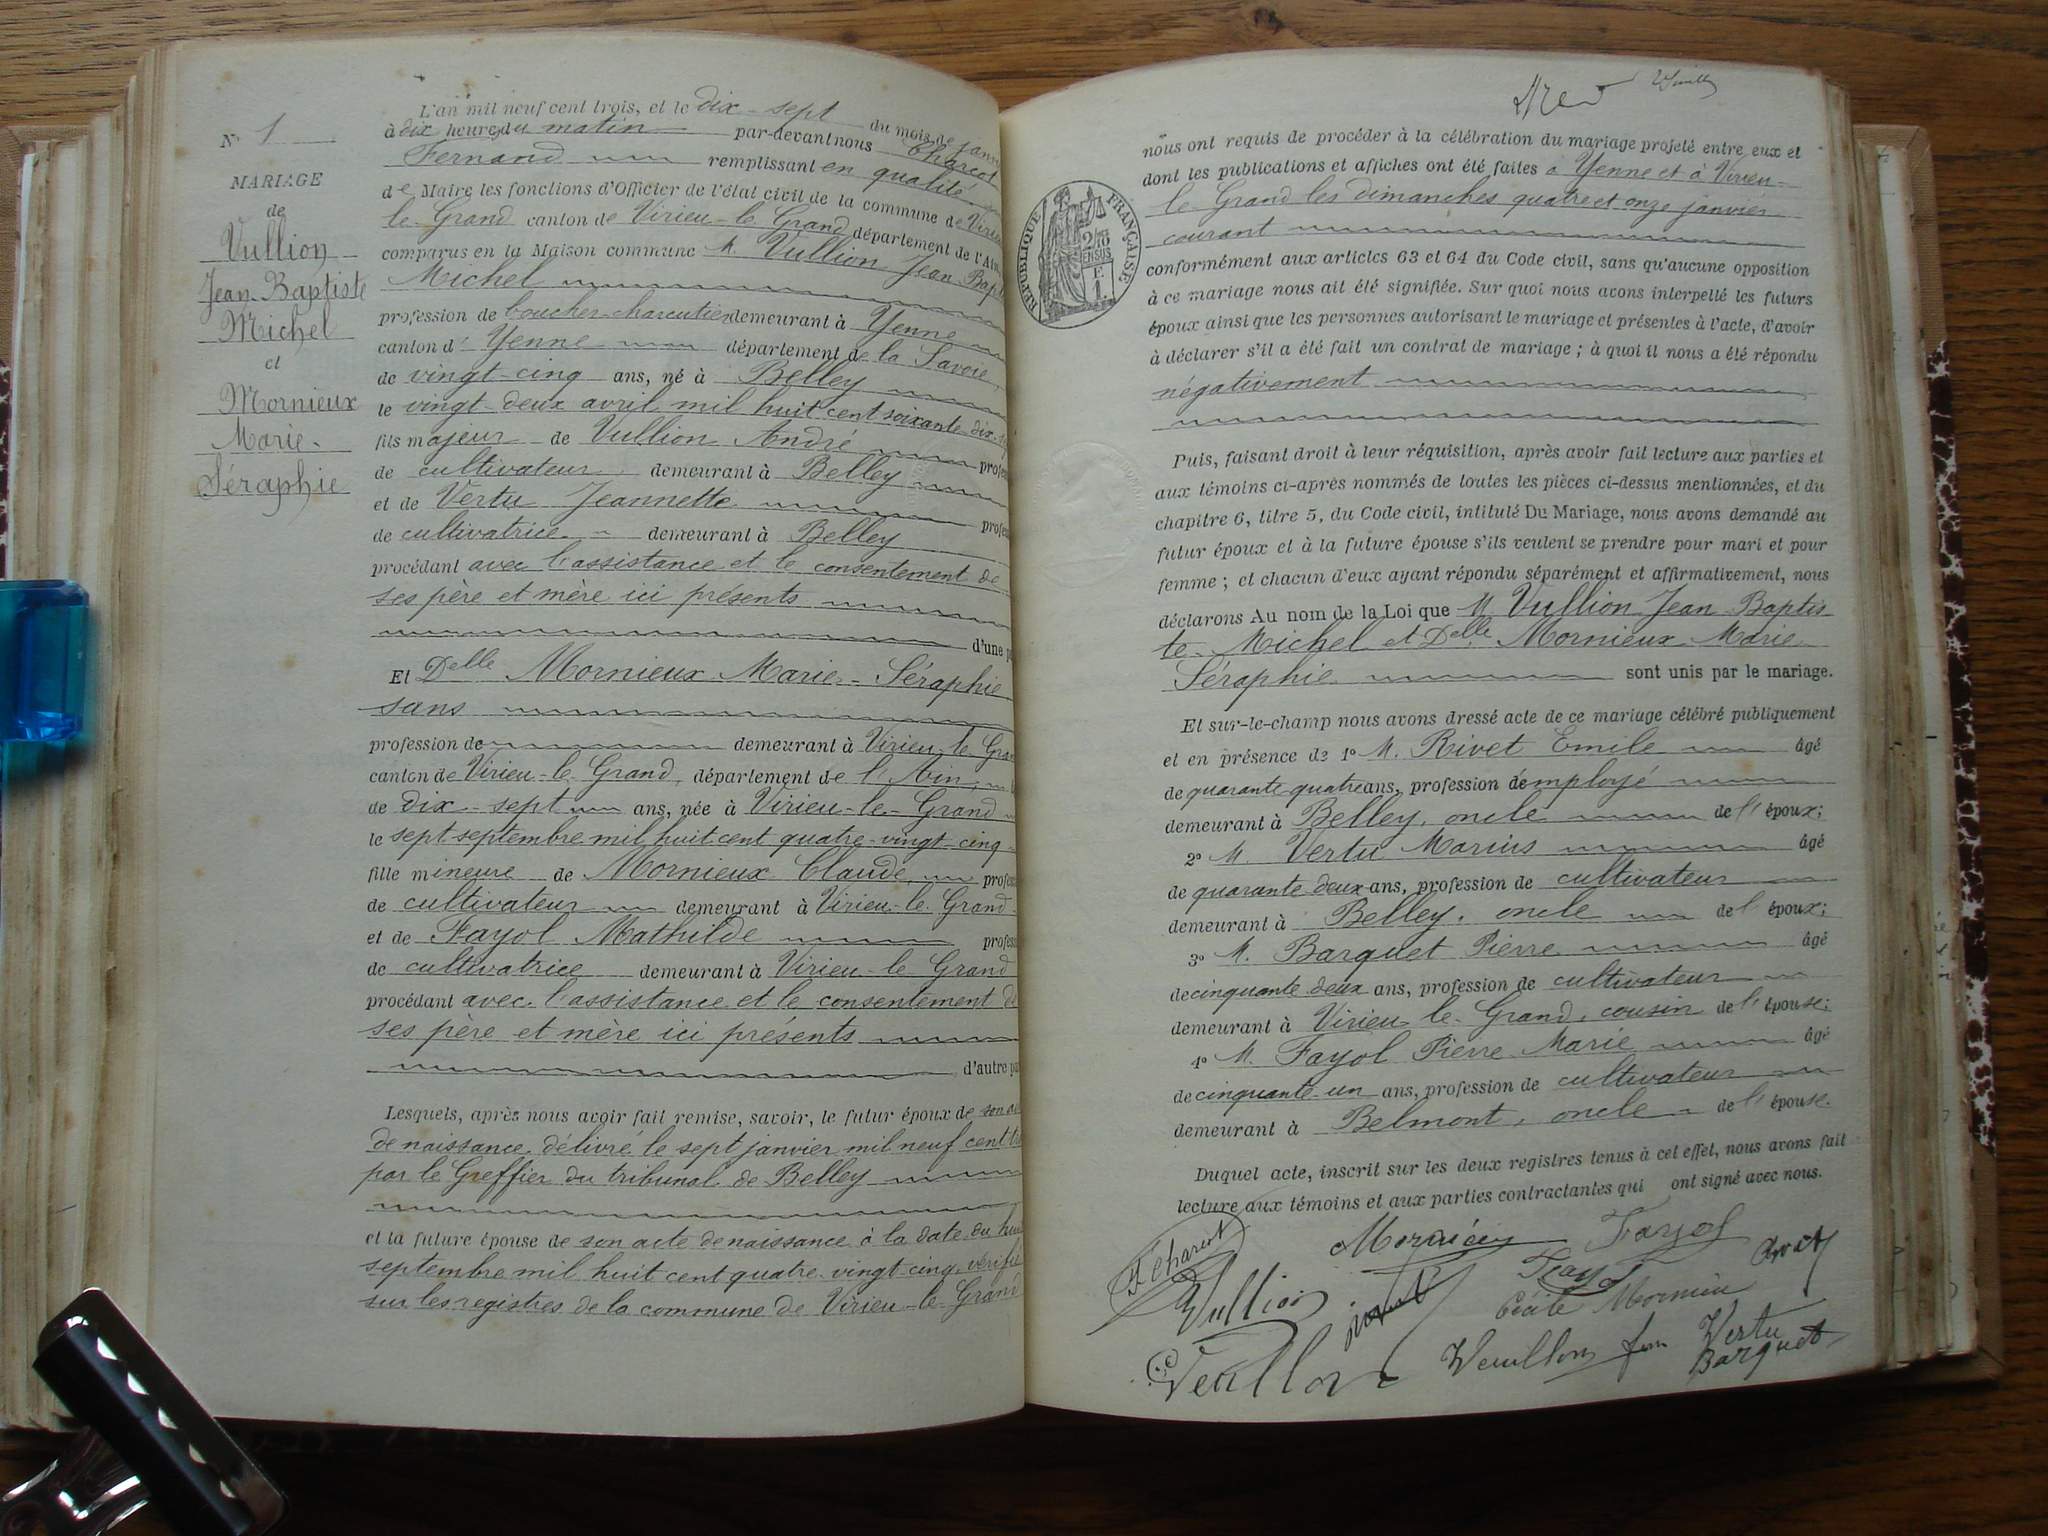 N° 1
MARIAGE
de
Vullion
Jean-Baptiste
Michel
et
Mornieux
Marie-
Séraphie
L'an mil neuf cent trois, et le dix-sept du mois de janv
à dix heures du matin par-devant nous Charcot
Fernand remplissant en qualité
de Maire les fonctions d'Officier de l'état civil de la commune de Virieu
le-Grand canton de Virieu-le-Grand département de l'Ain,
comparus en la Maison commune M. Vullion Jean Bap
Michel
profession de boucher-charcutier demeurant à Yenne
canton d' Yenne département de la Savoie,
de vingt-cinq ans, né à Belley
le vingt-deux avril mil huit cent soixante-dix-
fils majeur de Vullion André profes
de cultivateur demeurant à Belley
et de Vertu Jeannette profes
de cultivatrice demeurant à Belley
procédant avec l'assistance et le consentement de
ses père et mère ici présents
d'une p
Et Delle Mornieux Marie-Séraphie
sans
profession de demeurant à Virieu-le-Gran
canton de Virieu-le-Grand, département de l'Ain,
de dix-sept ans, née à Virieu-le-Grand
le sept septembre mil huit cent quatre-vingt-cinq
fille mineure de Mornieux Claude, profes
de cultivateur demeurant à Virieu-le-Grand
et de Fayol Mathilde profes
de cultivatrice demeurant à Virieu-le-Grand
procédant avec l'assistance et le consentement d
ses père et mère ici présents
d'autre pa
Lesquels, après nous avoir fait remise, savoir, le futur époux de son
de naissance délivré le sept janvier mil neuf cent tr
par le Greffier du tribunal de Belley
et la future épouse de son acte de naissance à la date du hui
septembre mil huit cent quatre-vingt-cinq, vérifié
sur les registres de la commune de Virieu-le-Grand
nous ont requis de procéder à la célébration du mariage projeté entre eux et
dont les publications et affiches ont été faites à Yenne et à Virieu-
le-Grand les dimanches quatre et onze janvier
courant
RÉPUBLIQUE FRANÇAISE
2/10
EN SUS
F.
1.
conformément aux articles 63 et 64 du Code civil, sans qu'aucune opposition
à ce mariage nous ait été signifiée. Sur quoi nous avons interpellé les futurs
époux ainsi que les personnes autorisant le mariage et présentes à l'acte, d'avoir
à déclarer s'il a été fait un contrat de mariage ; à quoi il nous a été répondu
négativement
Puis, faisant droit à leur réquisition, après avoir fait lecture aux parties et
aux témoins ci-après nommés de toutes les pièces ci-dessus mentionnées, et du
chapitre 6, titre 5, du Code civil, intitulé Du Mariage, nous avons demandé au
futur époux et à la future épouse s'ils veulent se prendre pour mari et pour
femme ; et chacun d'eux ayant répondu séparément et affirmativement, nous
déclarons Au nom de la Loi que M. Vullion Jean-Baptis
te-Michel et Delle Mornieux Marie-
Séraphie sont unis par le mariage.
Et sur-le-champ nous avons dressé acte de ce mariage célébré publiquement
et en présence de 1° M. Rivet Emile âgé
de quarante quatre ans, profession d'employé
demeurant à Belley, oncle de l'époux;
2° M. Vertu Marius âgé
de quarante deux ans, profession de cultivateur
demeurant à Belley, oncle de l'époux;
3° M. Barquet Pierre âgé
de cinquante deux ans, profession de cultivateur
demeurant à Virieu-le-Grand, cousin de l'épouse;
4° M. Fayol Pierre Marie âgé
de cinquante-un ans, profession de cultivateur
demeurant à Belmont, oncle de l'épouse.
Duquel acte, inscrit sur les deux registres tenus à cet effet, nous avons fait
lecture aux témoins et aux parties contractantes qui ont signé avec nous.
F Charcot
Mornieux
Fayol
Vullion
Fayol
Cécile Mornieu
Veullon
Veuillon
Vertu
Barquet